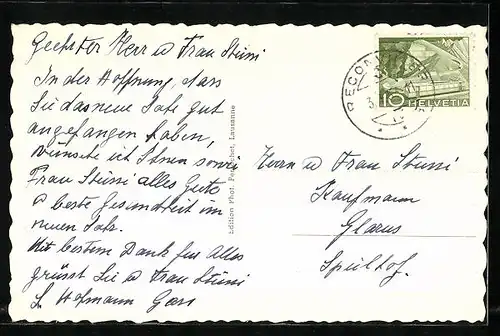 Geehrter Herr u Frau Stüssi
In der Hoffnung, dass
Sie das neue Jahr gut
angefangen haben,
wünsche ich Ihnen sowi
Frau Stüssi alles Gute
u beste Gesundheit im
neuen Jahr.
Mit bestem Dank für Alles
grüsst Sie u Frau Stüssi
Hofmann
Edition Phot. Lausanne
RECON
10 HELVETIA
Herrn u Frau Stüssi
Kaufmann
Glarus
Spielhof.